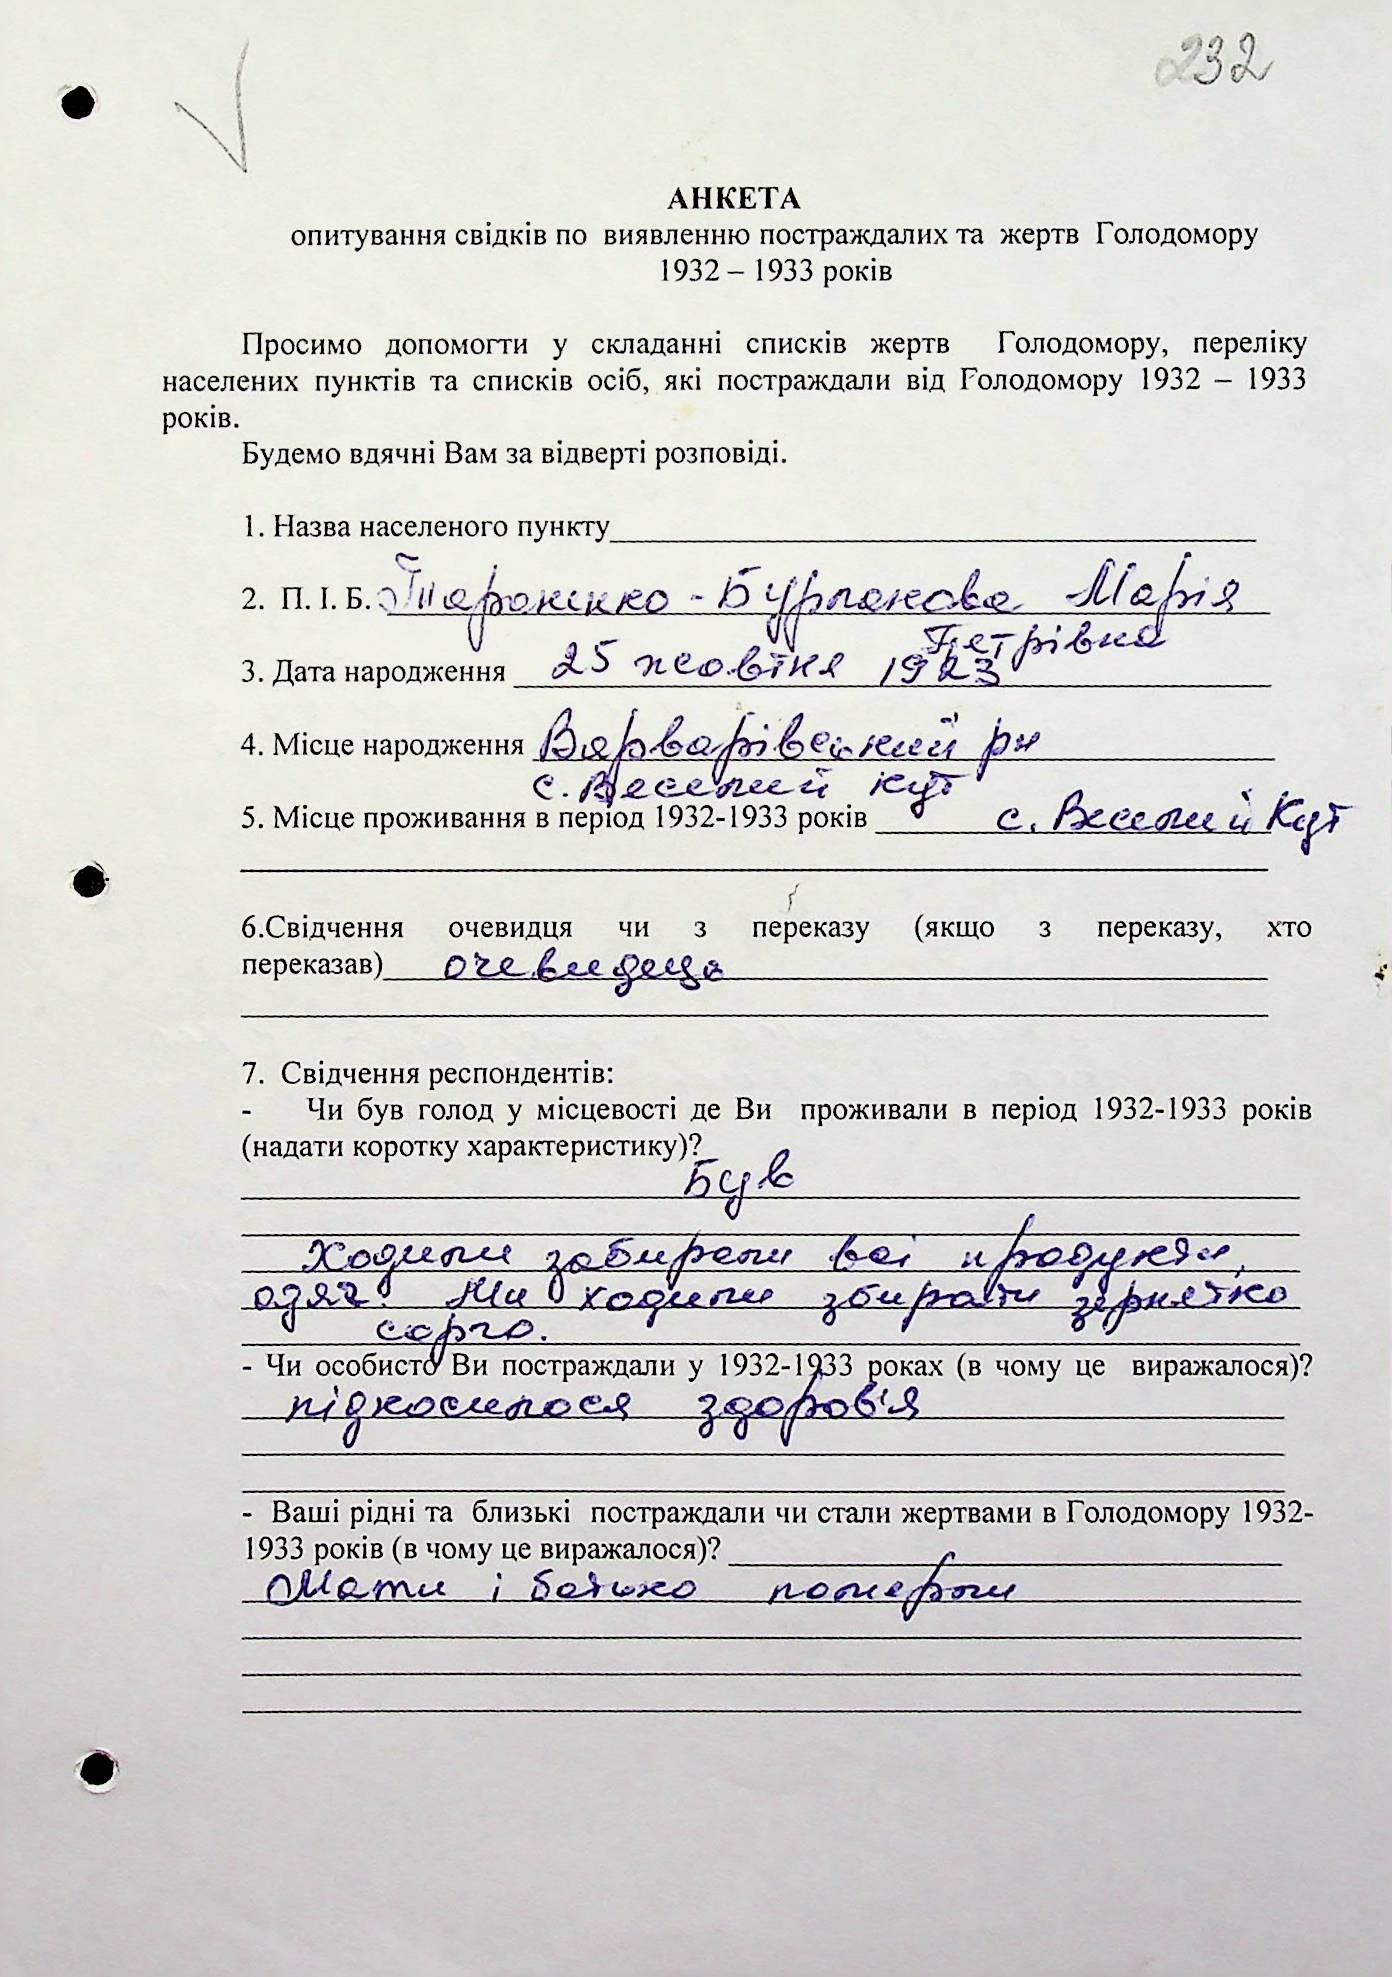 232
АНКЕТА
опитування свідків по виявленню постраждалих та жертв Голодомору
1932 – 1933 років
Просимо допомогти у складанні списків жертв Голодомору, переліку
населених пунктів та списків осіб, які постраждали від Голодомору 1932 – 1933
років.
Будемо вдячні Вам за відверті розповіді.
1. Назва населеного пункту
2. П. І. Б. Тараненко - Бурлакова Марія
Петрівна
3. Дата народження 25 жовтня 1923
4. Місце народження Варварівський рн
с. Веселий кут
5. Місце проживання в період 1932-1933 років с. Веселий Кут
6.Свідчення очевидця чи з переказу (якщо з переказу, хто
переказав) очевидець
7. Свідчення респондентів:
- Чи був голод у місцевості де Ви проживали в період 1932-1933 років
(надати коротку характеристику)?
Був
Ходили забирали всі продукти,
одяг. Ми ходили збирати зернятко
сорго.
- Чи особисто Ви постраждали у 1932-1933 роках (в чому це виражалося)?
підкосилося здоров'я
- Ваші рідні та близькі постраждали чи стали жертвами в Голодомору 1932-
1933 років (в чому це виражалося)?
Мати і батько померли